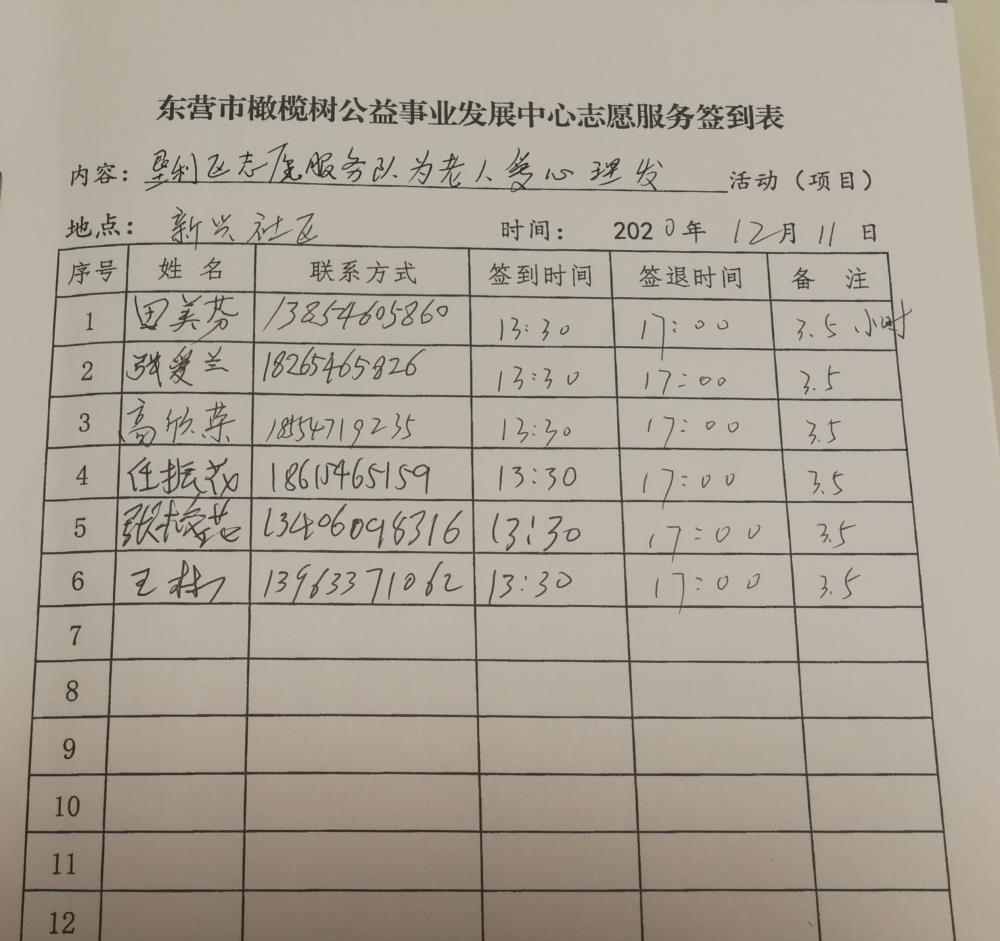 东营市橄榄树公益事业发展中心志愿服务签到表
内容：垦利区志愿服务队为老人爱心理发活动（项目）
地点：新兴社区 时间：2020年12月11日
序号 姓名 联系方式 签到时间 签退时间 备注
1 田美芬 13854605860 13:30 17:00 3.5小时
2 张爱兰 18265465826 13:30 17:00 3.5
3 高欣荣 18554719235 13:30 17:00 3.5
4 任振花 18615465159 13:30 17:00 3.5
5 张 13406098316 13:30 17:00 3.5
6 王林 13963371062 13:30 17:00 3.5
7
8
9
10
11
12